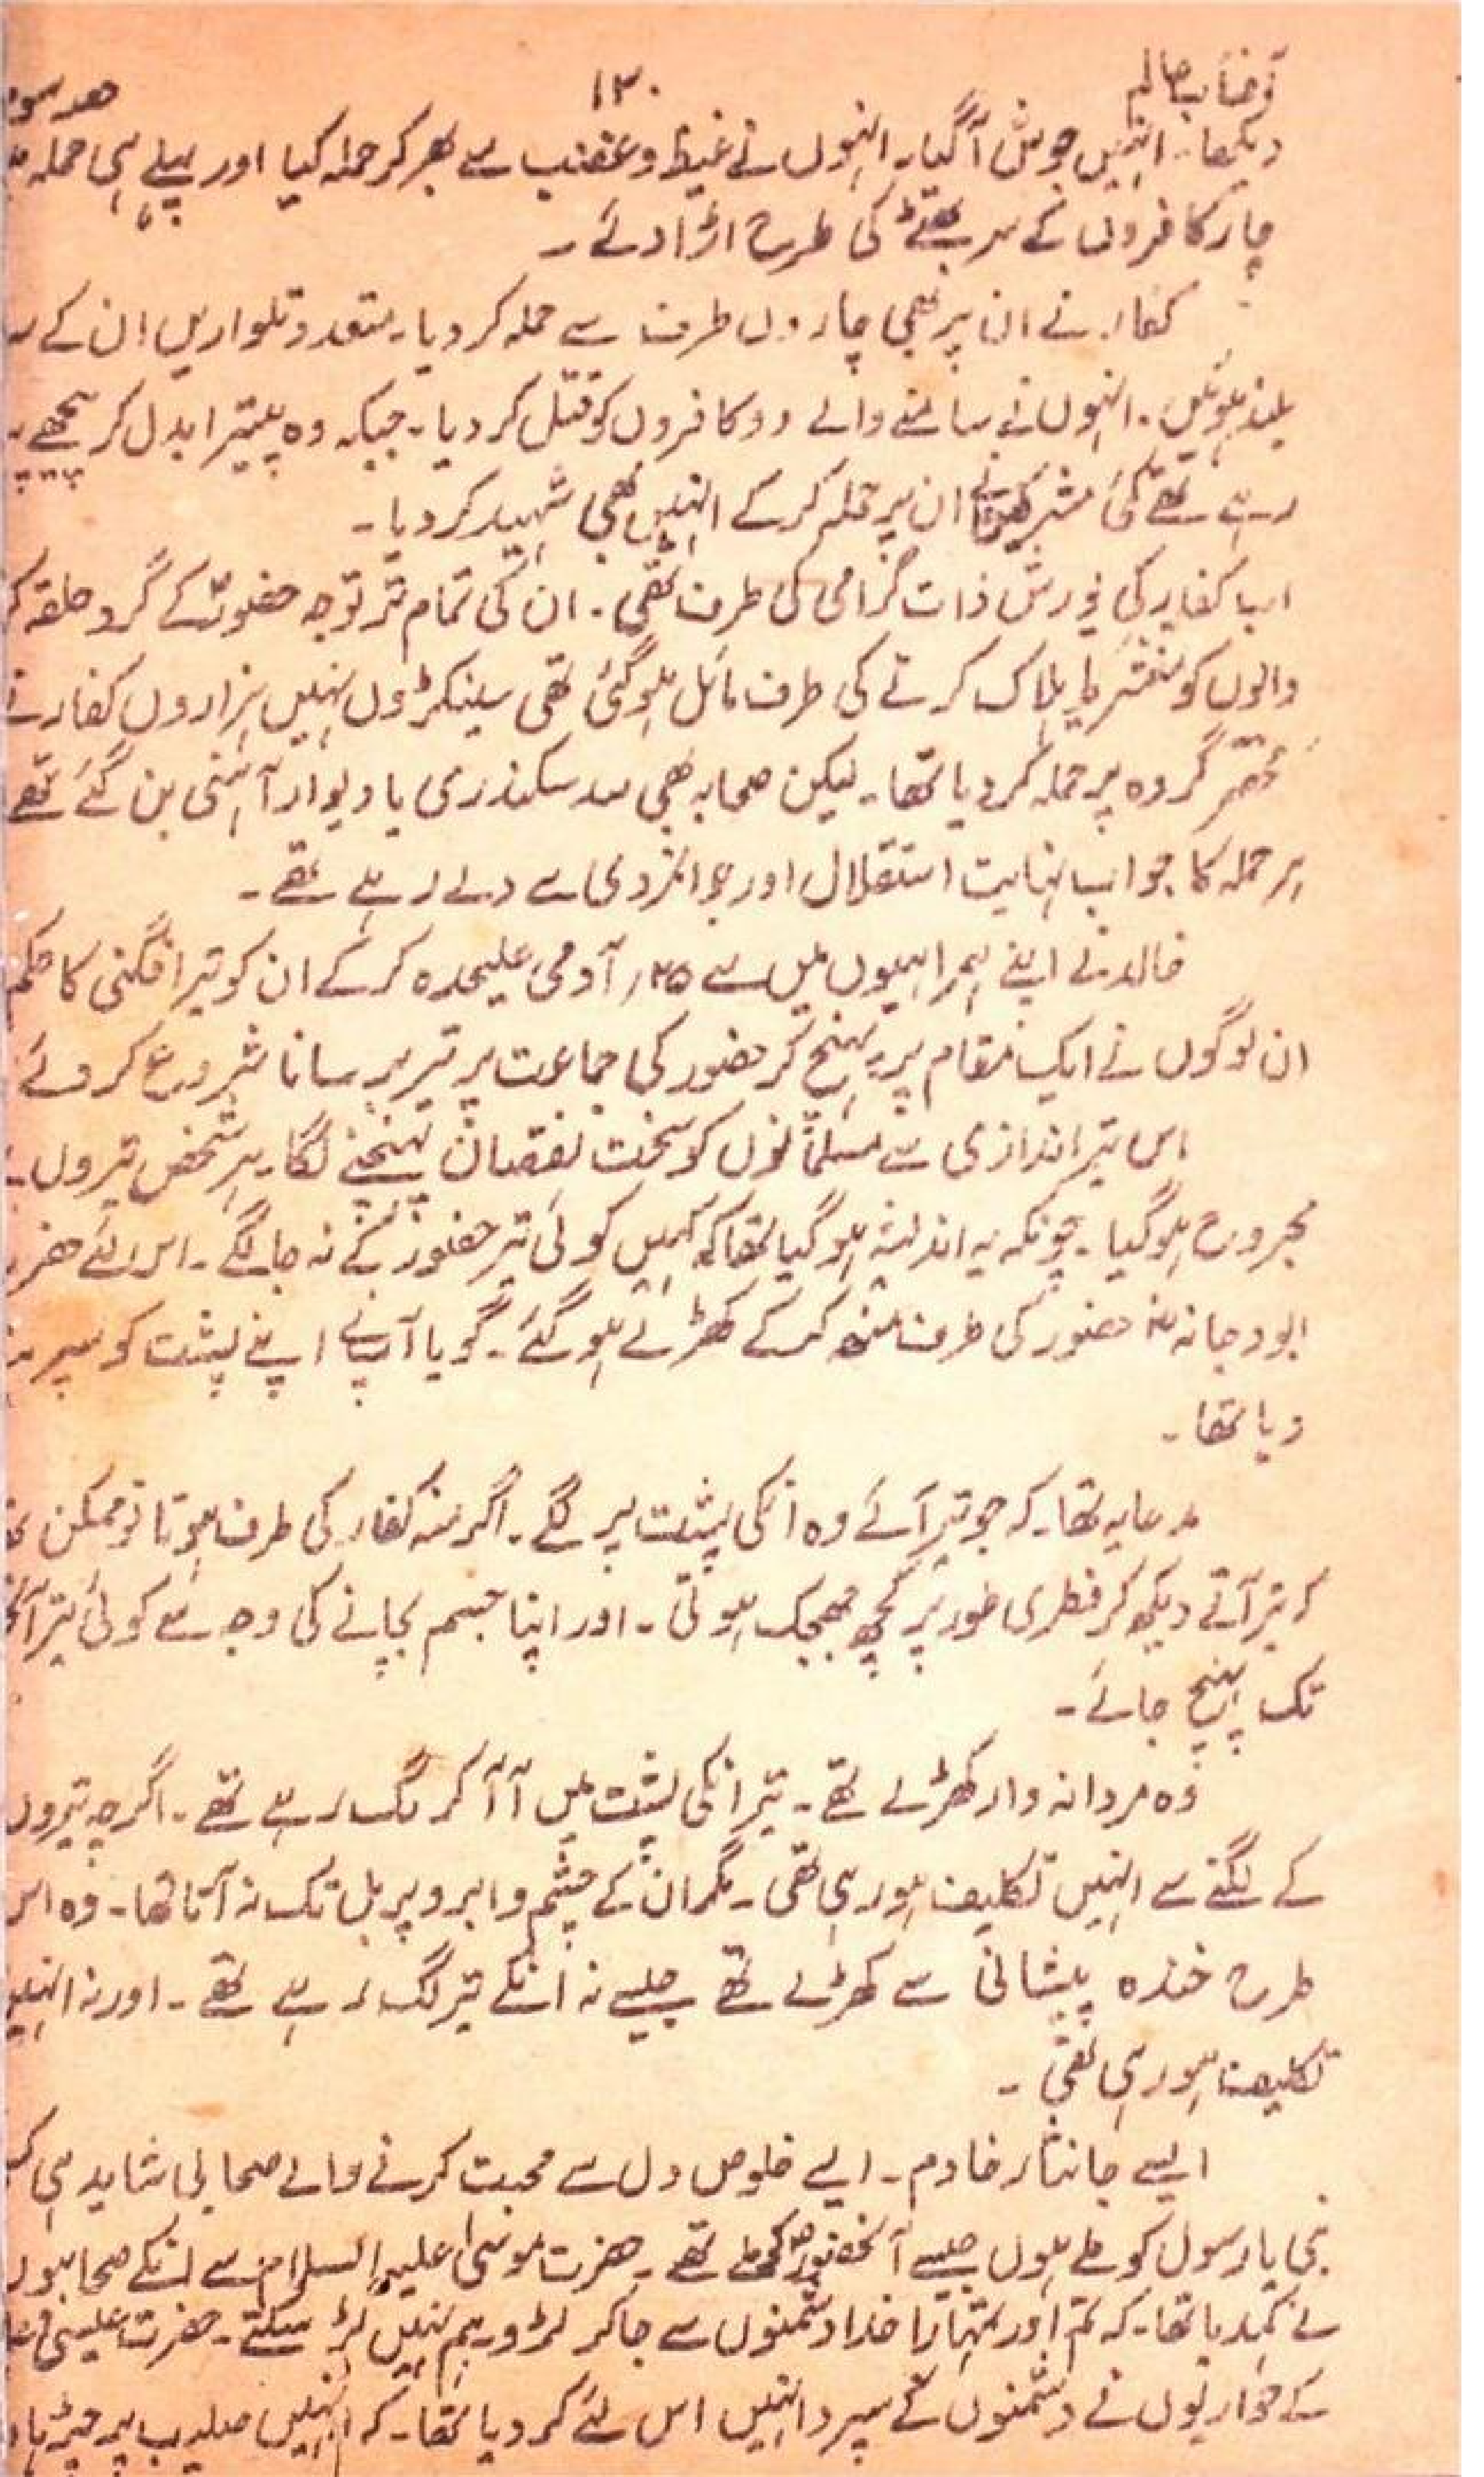 آفتاب عالم ۱۳۰ حصہ سوم
دیکھا۔ انہیں جوش آ گیا۔ انہوں نے غیظ و غضب سے بھر کر حملہ کیا اور پہلے ہی حملہ
چار کافروں کے سر بھٹے کی طرح اڑا دئے۔
کفار نے ان پر بھی چاروں طرف سے حملہ کر دیا۔ متعدد تلواریں ان کے
بلند ہوئیں۔ انہوں نے سامنے والے دو کافروں کو قتل کر دیا۔ جبکہ وہ پینترا بدل کر پیچھے
رہے تھے کئی مشرکین نے ان پر حملہ کر کے انہیں بھی شہید کر دیا۔
اب کفار کی یورش ذات گرامی کی طرف تھی۔ ان کی تمام تر توجہ حضورؐ کے گرد حلقہ
والوں کو منتشر یا ہلاک کرنے کی طرف مائل ہو گئی تھی سینکڑوں نہیں ہزاروں کفار نے
مختصر گروہ پر حملہ کر دیا تھا۔ لیکن صحابہ بھی سد سکندری یا دیوار آہنی بن گئے تھے
ہر حملہ کا جواب نہایت استقلال اور جوانمردی سے دے رہے تھے۔
خالد نے اپنے ہمراہیوں میں سے ۲۵ آدمی علیحدہ کر کے ان کو تیر افگنی کا حکم
ان لوگوں نے ایک مقام پر پہنچ کر حضور کی جماعت پر تیر برسانا شروع کر دئے
اس تیر اندازی سے مسلمانوں کو سخت نقصان پہنچنے لگا۔ ہر شخص تیروں
مجروح ہو گیا۔ چونکہ یہ اندیشہ ہو گیا تھا کہ کہیں کوئی تیر حضورؐ کے نہ جا لگے۔ اس لئے
ابو دجانہؓ حضور کی طرف منہ کر کے کھڑے ہو گئے۔ گویا آپ نے اپنے پشت کو سپر
دیا تھا۔
مدعا یہ تھا۔ کہ جو تیر آئے وہ انکی پشت پر لگے۔ اگر منہ کفار کی طرف ہوتا تو ممکن
کہ تیر آتے دیکھ کر فطری طور پر کچھ جھجک ہوتی۔ اور اپنا جسم بچانے کی وجہ سے کوئی تیر
تک پہنچ جائے۔
وہ مردانہ وار کھڑے تھے۔ تیر انکی پشت میں آ آ کر لگ رہے تھے۔ اگرچہ تیروں
کے لگنے سے انہیں تکلیف ہو رہی تھی۔ مگر ان کے چشم و ابرو پر بل تک نہ آتا تھا۔ وہ اس
طرح خندہ پیشانی سے کھڑے تھے جیسے نہ انکے تیر لگ رہے تھے۔ اور نہ انہیں
تکلیف ہو رہی تھی۔
ایسے جانثار خادم۔ ایسے خلوص دل سے محبت کرنے والے صحابی شاید ہی
نبی یا رسول کو ملے ہوں جیسے آنحضورؐ کو ملے تھے۔ حضرت موسیٰ علیہ السلام سے انکے صحابیوں
نے کہدیا تھا۔ کہ تم اور تمہارا خدا دشمنوں سے جا کر لڑو۔ ہم نہیں لڑ سکتے۔ حضرت عیسیٰ
کے حواریوں نے دشمنوں کے سپرد انہیں اس لئے کر دیا تھا۔ کہ انہیں صلیب پر